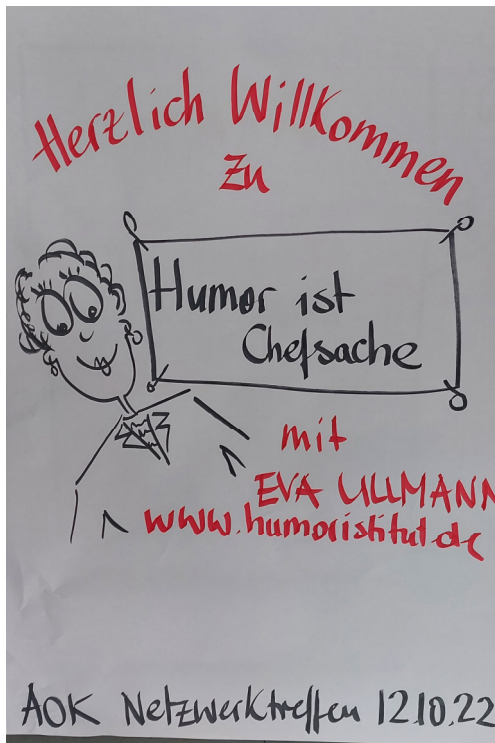 Herzlich Willkommen
zu
Humor ist
Chefsache
mit
EVA ULLMANN
www.humoristitut.de
AOK Netzwerktreffen 12.10.22